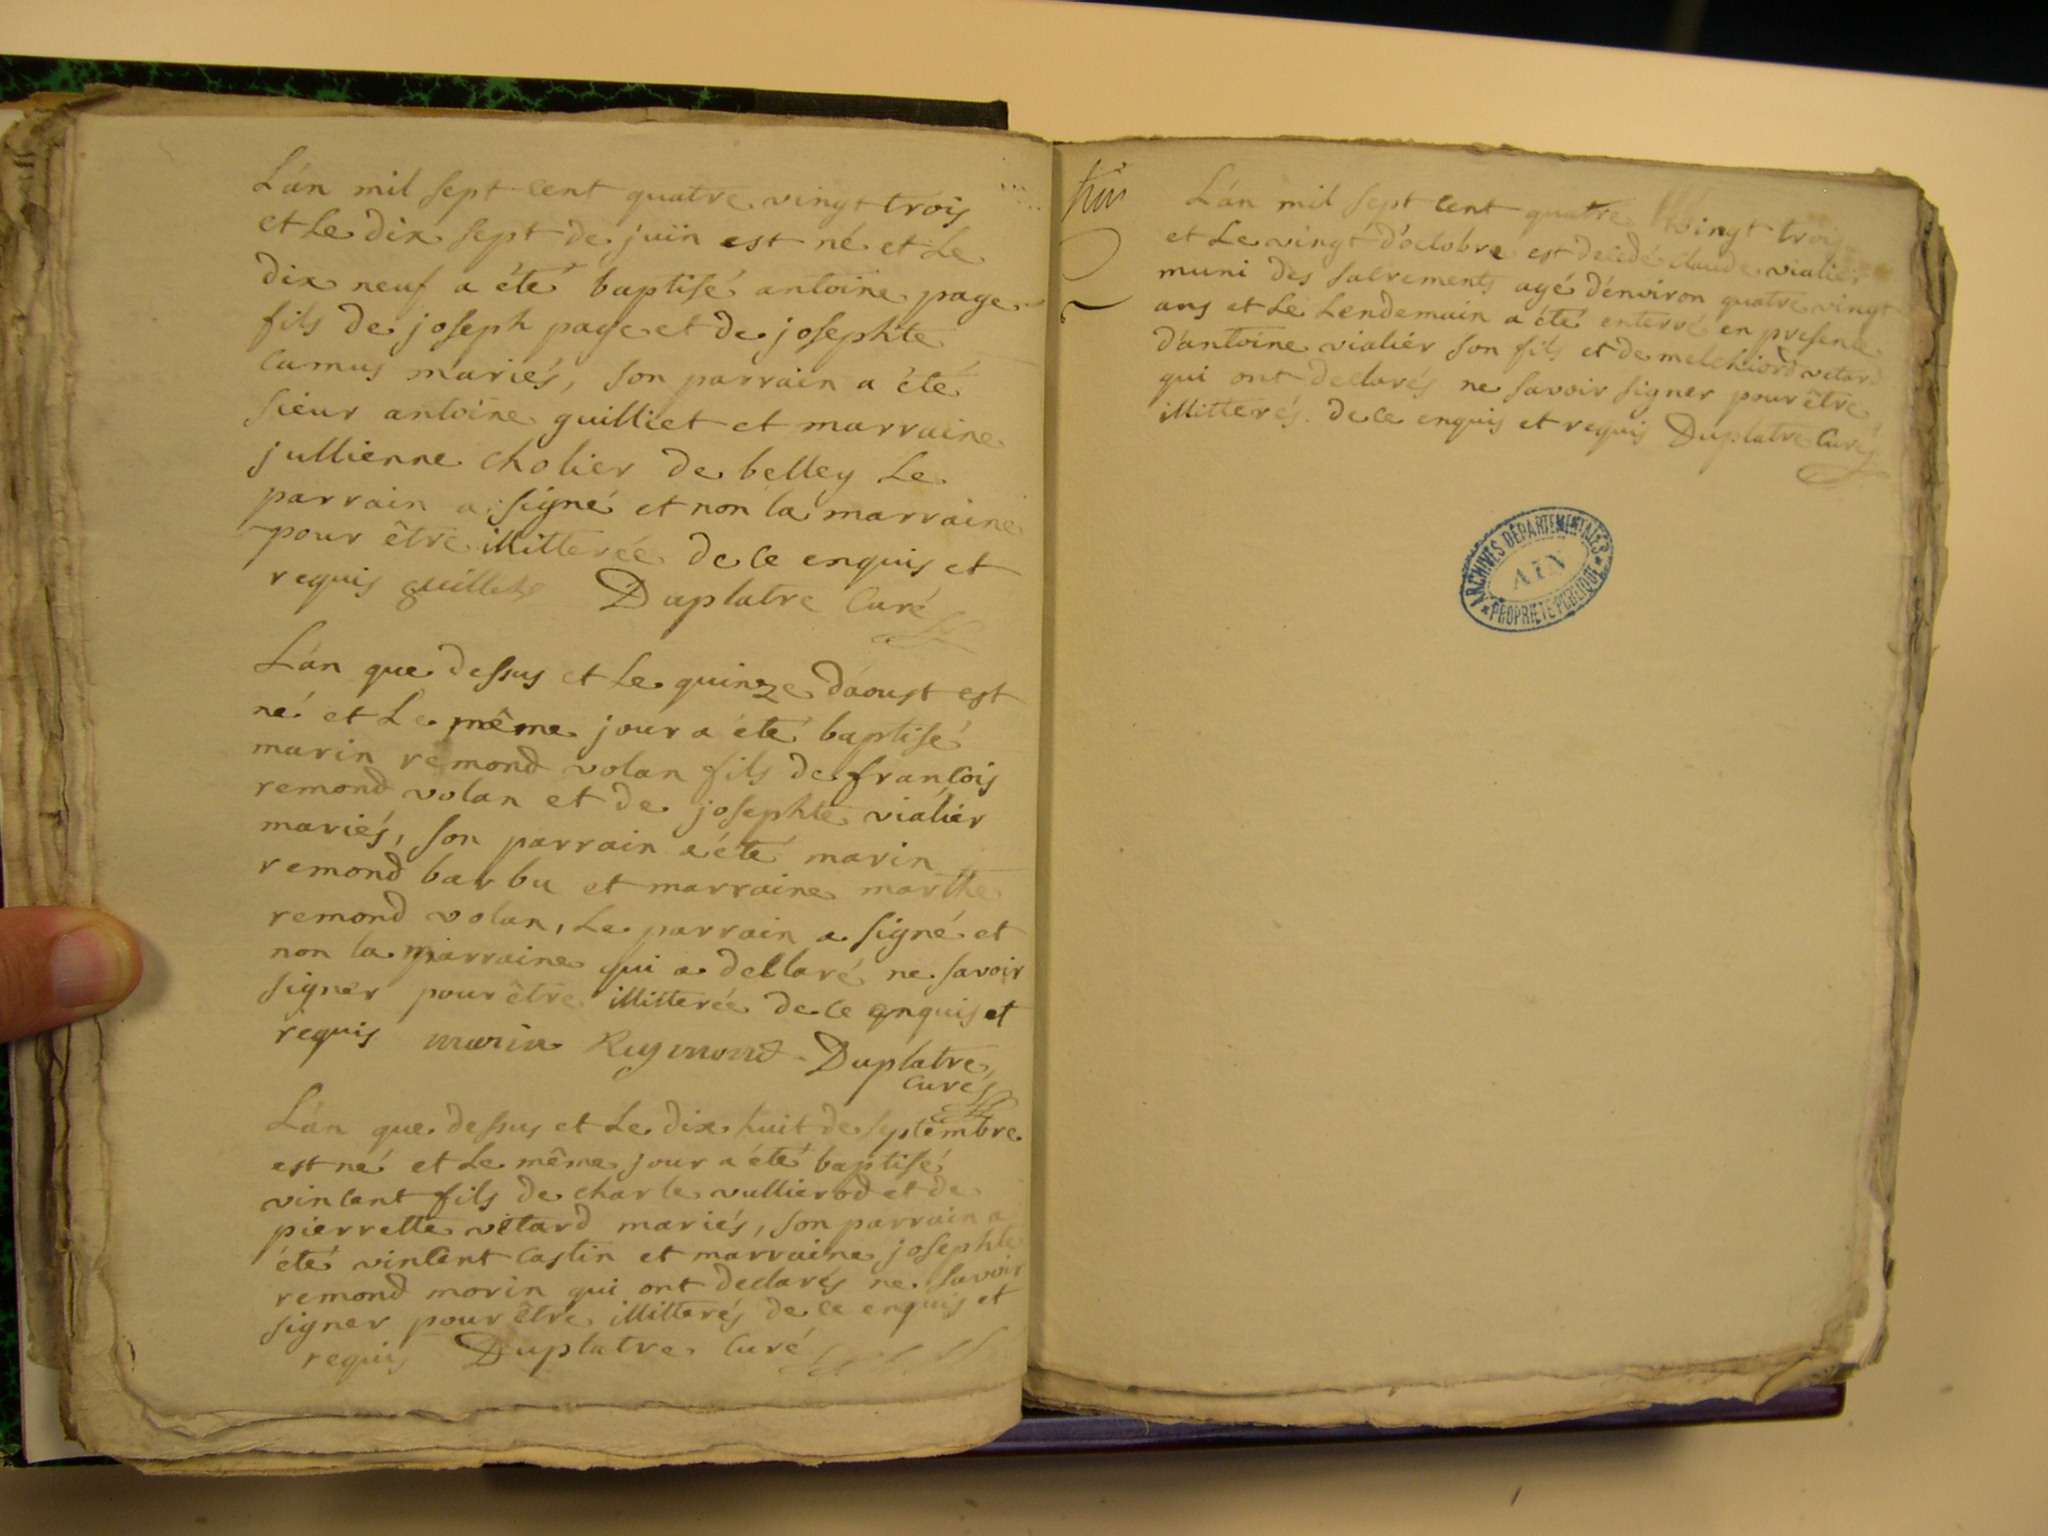 L'an mil sept cent quatre vingt trois
et Le dix sept de juin est né et Le
dix neuf a été baptisé antoine page
fils de joseph page et de josephte
camus mariés, son parrain a été
sieur antoine guilliet et marraine
jullienne cholier de belley Le
parrain a signé et non la marraine
pour être illitterée de ce enquis et
requis guilliet Duplatre Curé
L'an que dessus et Le quinze d'aoust est
né et Le même jour a été baptisé
marin remond volan fils de francois
remond volan et de josephte vialier
mariés, son parrain a été marin
remond barbu et marraine marthe
remond volan, Le parrain a signé et
non la marraine qui a declaré ne savoir
signer pour être illitterée de ce enquis et
requis marin Reymond Duplatre
curé
L'an que dessus et Le dix huit de septembre
est né et Le même jour a été baptisé
vincent fils de charle vullierod et de
pierrette vitard mariés, son parrain a
été vincent castin et marraine josephte
remond morin qui ont declarés ne savoir
signer pour être illitterés de ce enquis et
requis Duplatre Curé
L'an mil sept cent quatre vingt trois
et Le vingt d'octobre est decedé claude vialier
muni des sacrements agé d'environ quatre vingt
ans et Le Lendemain a été enterré en presence
d'antoine vialier son fils et de melchiord vitard
qui ont declarés ne savoir signer pour être
illitterés de ce enquis et requis Duplatre Curé
ARCHIVES DÉPARTEMENTALES
AIN
PROPRIÉTÉ PUBLIQUE